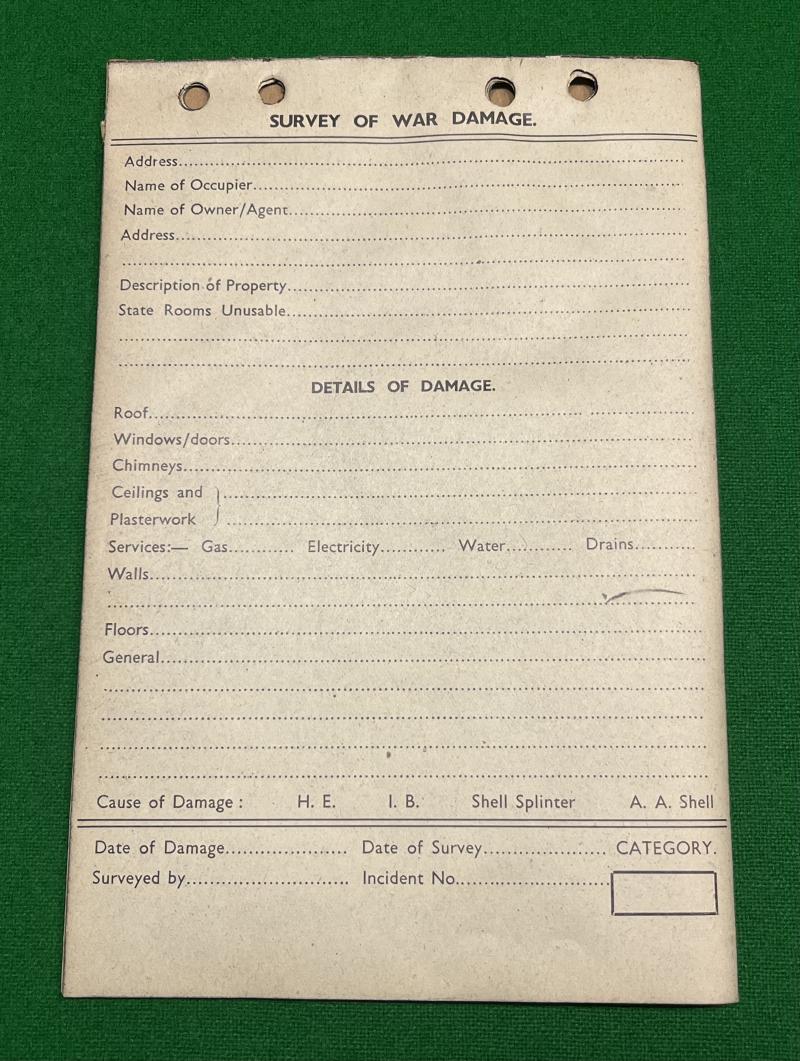 SURVEY OF WAR DAMAGE.
Address...............................................................................................
Name of Occupier................................................................................
Name of Owner/Agent..........................................................................
Address...............................................................................................
...............................................................................................
Description of Property..........................................................................
State Rooms Unusable..........................................................................
...............................................................................................
...............................................................................................
DETAILS OF DAMAGE.
Roof...............................................................................................
Windows/doors...................................................................................
Chimneys...........................................................................................
Ceilings and }.....................................................................................
Plasterwork }.....................................................................................
Services:— Gas............ Electricity............ Water............ Drains...........
Walls...............................................................................................
...............................................................................................
Floors...............................................................................................
General...............................................................................................
...............................................................................................
...............................................................................................
...............................................................................................
...............................................................................................
Cause of Damage : H. E. I. B. Shell Splinter A. A. Shell
Date of Damage..................... Date of Survey..................... CATEGORY.
Surveyed by............................ Incident No...........................